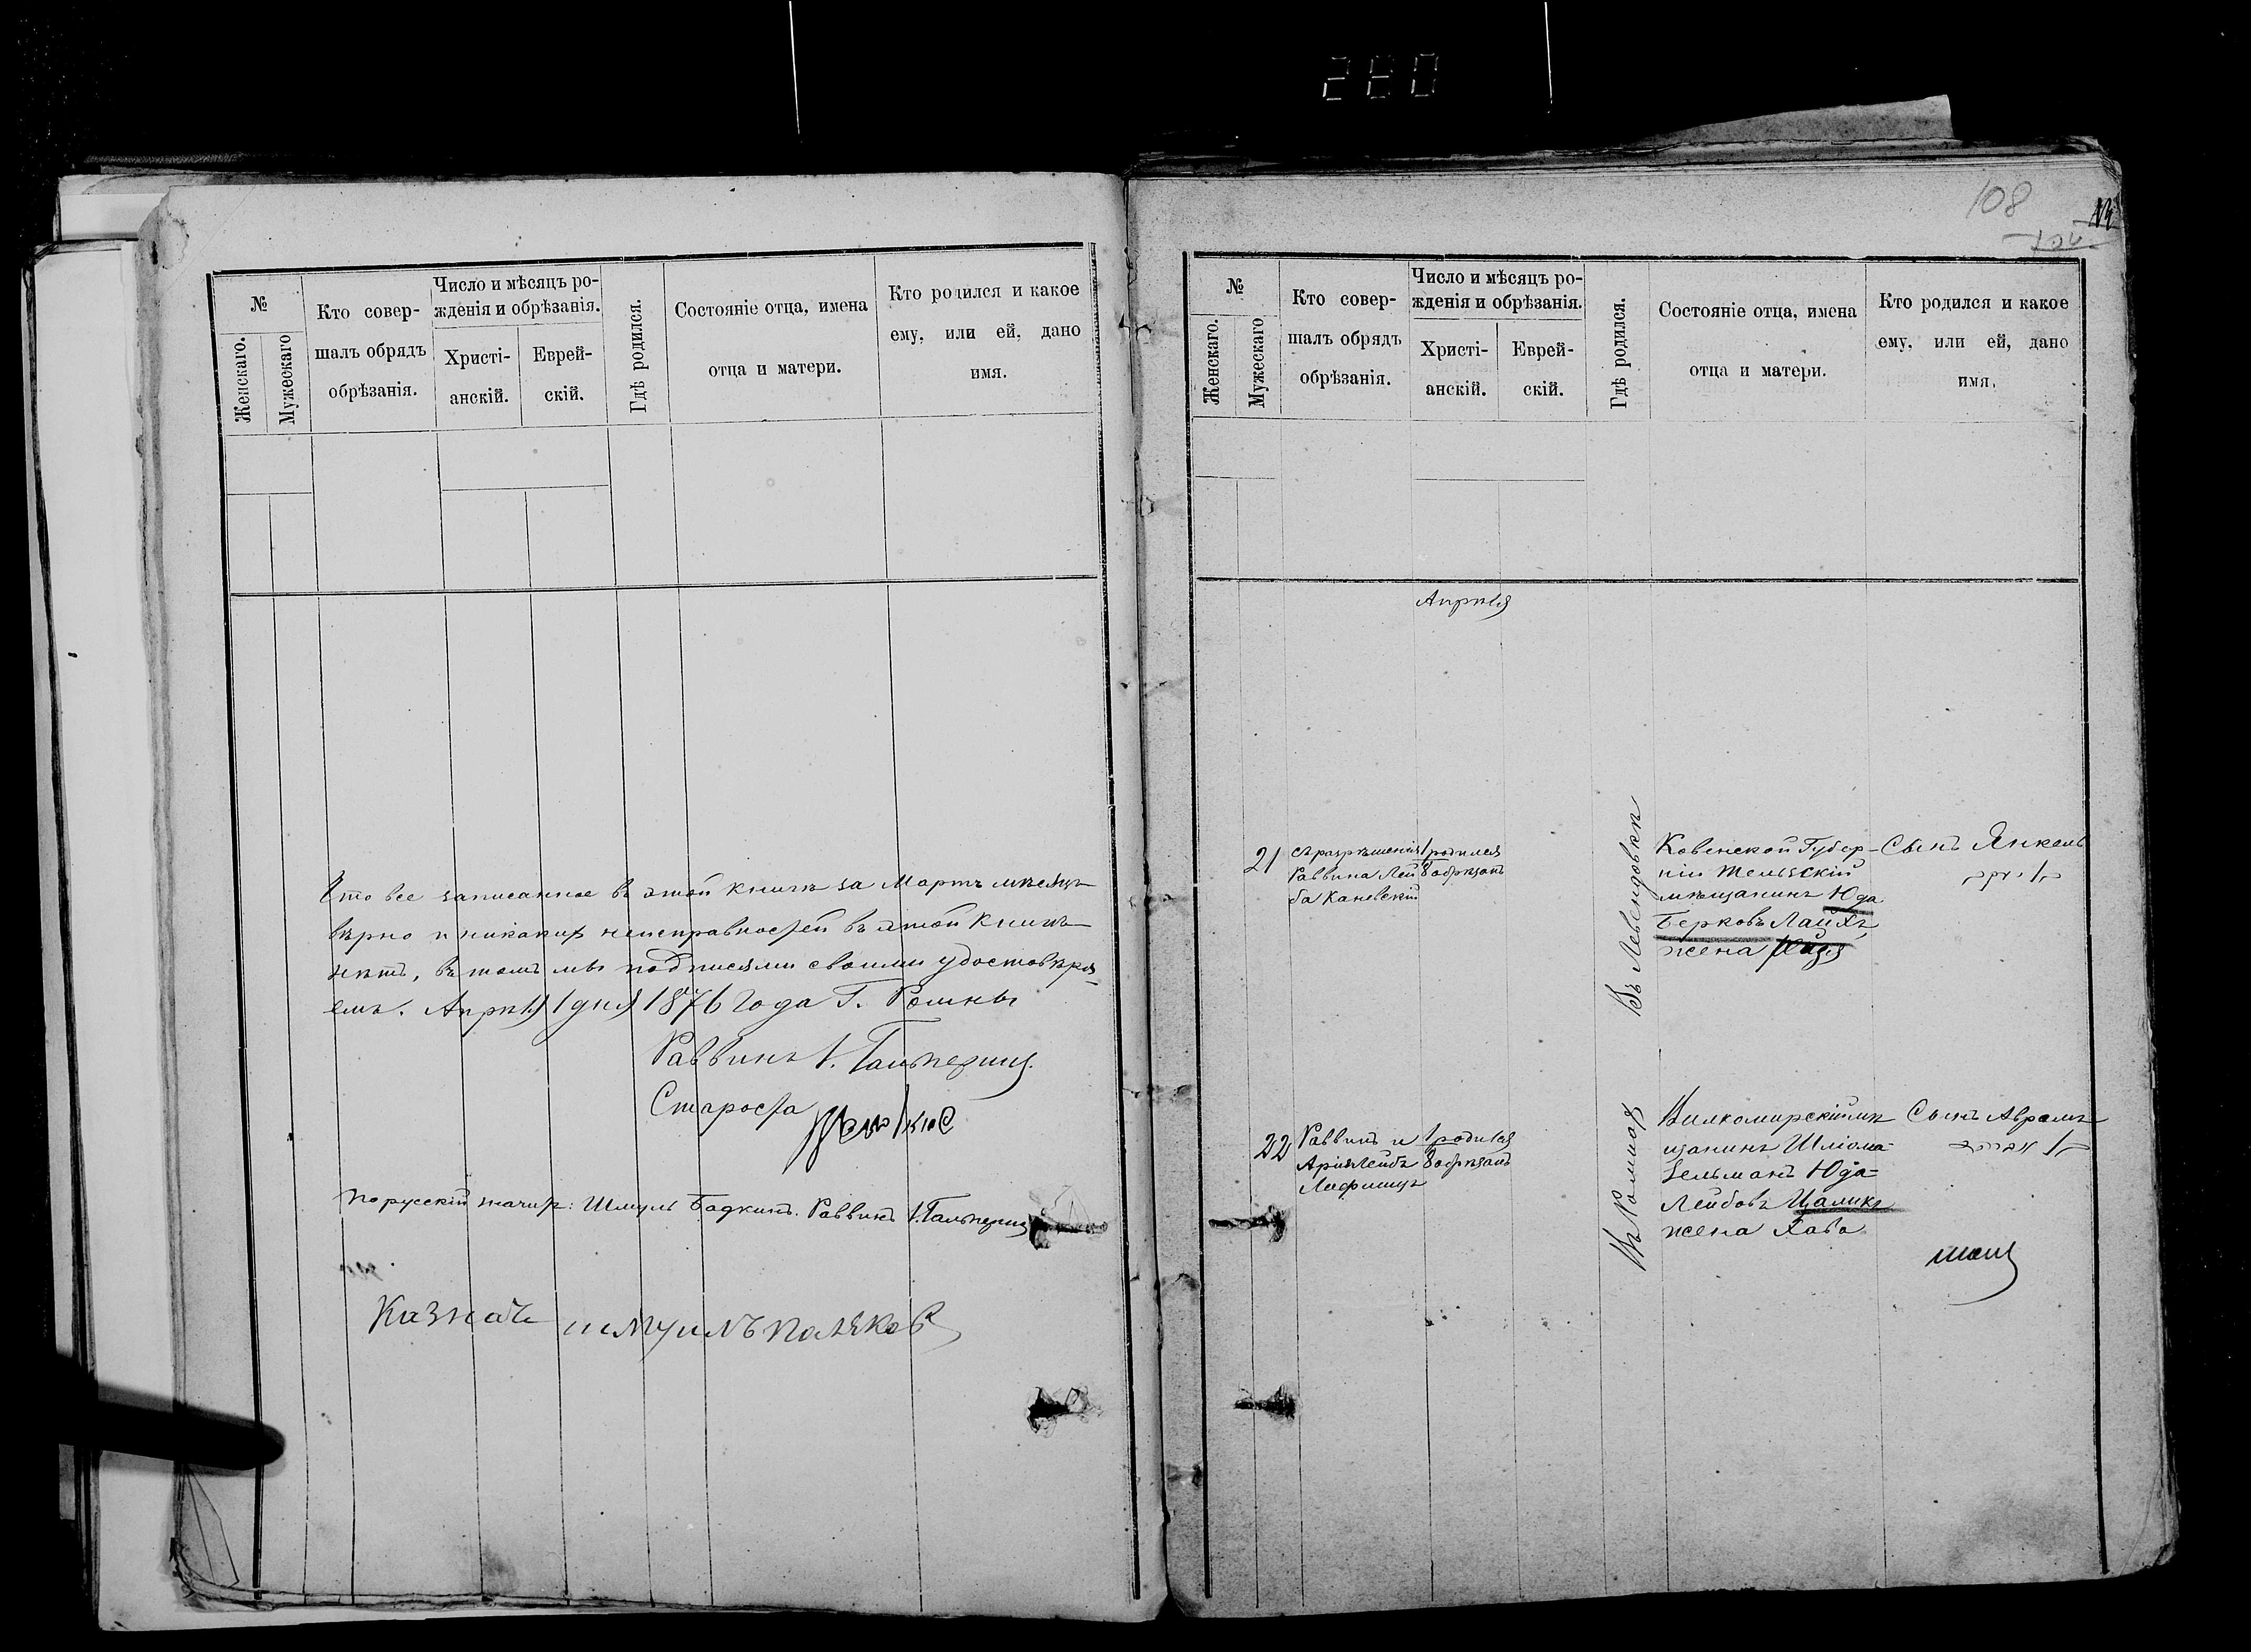 280
№
Женскаго.
Мужескаго
Кто совер-
шалъ обрядъ
обрѣзанія.
Число и мѣсяцъ ро-
жденія и обрѣзанія.
Христі-
анскій.
Еврей-
скій.
Гдѣ родился.
Состояніе отца, имена
отца и матери.
Кто родился и какое
ему, или ей, дано
имя.
Что все записанное в этой книгѣ за Мартъ мѣсяцъ
вѣрно и никаких неисправностей въ этой книгѣ
нѣтъ, въ томъ мы подписями своими удостовѣря
емъ. Апрѣля 1 дня 1876 года Г. Ромны
Раввинъ І. Гальперинъ
Староста
по русскій значит: Шмуль Бадкинъ. Раввинъ І. Гальперинъ
Казначе шмуилъ поляков
108
№
Женскаго.
Мужескаго
Кто совер-
шалъ обрядъ
обрѣзанія.
Число и мѣсяцъ ро-
жденія и обрѣзанія.
Христі-
анскій.
Еврей-
скій.
Гдѣ родился.
Состояніе отца, имена
отца и матери.
Кто родился и какое
ему, или ей, дано
имя.
Апрѣля
21
съ разрѣшенія
Раввина Лей
ба Каневскій
1 родился
8 обрѣзанъ
Въ Левендовкѣ
Ковенской Губер-
ніи Тельзскій
мѣщанинъ Юда
Берковъ Лайхъ
жена
Сынъ Янкель
22
Раввинъ и
Арія Лейбъ
Лифшицъ
1 родился
8 обрѣзанъ
Въ Ромнах
Вилкомирскій мѣ
щанинъ Шліома
Зельманъ Юда=
Лейбовъ Цаликъ
жена Хава
Сынъ Аврамъ